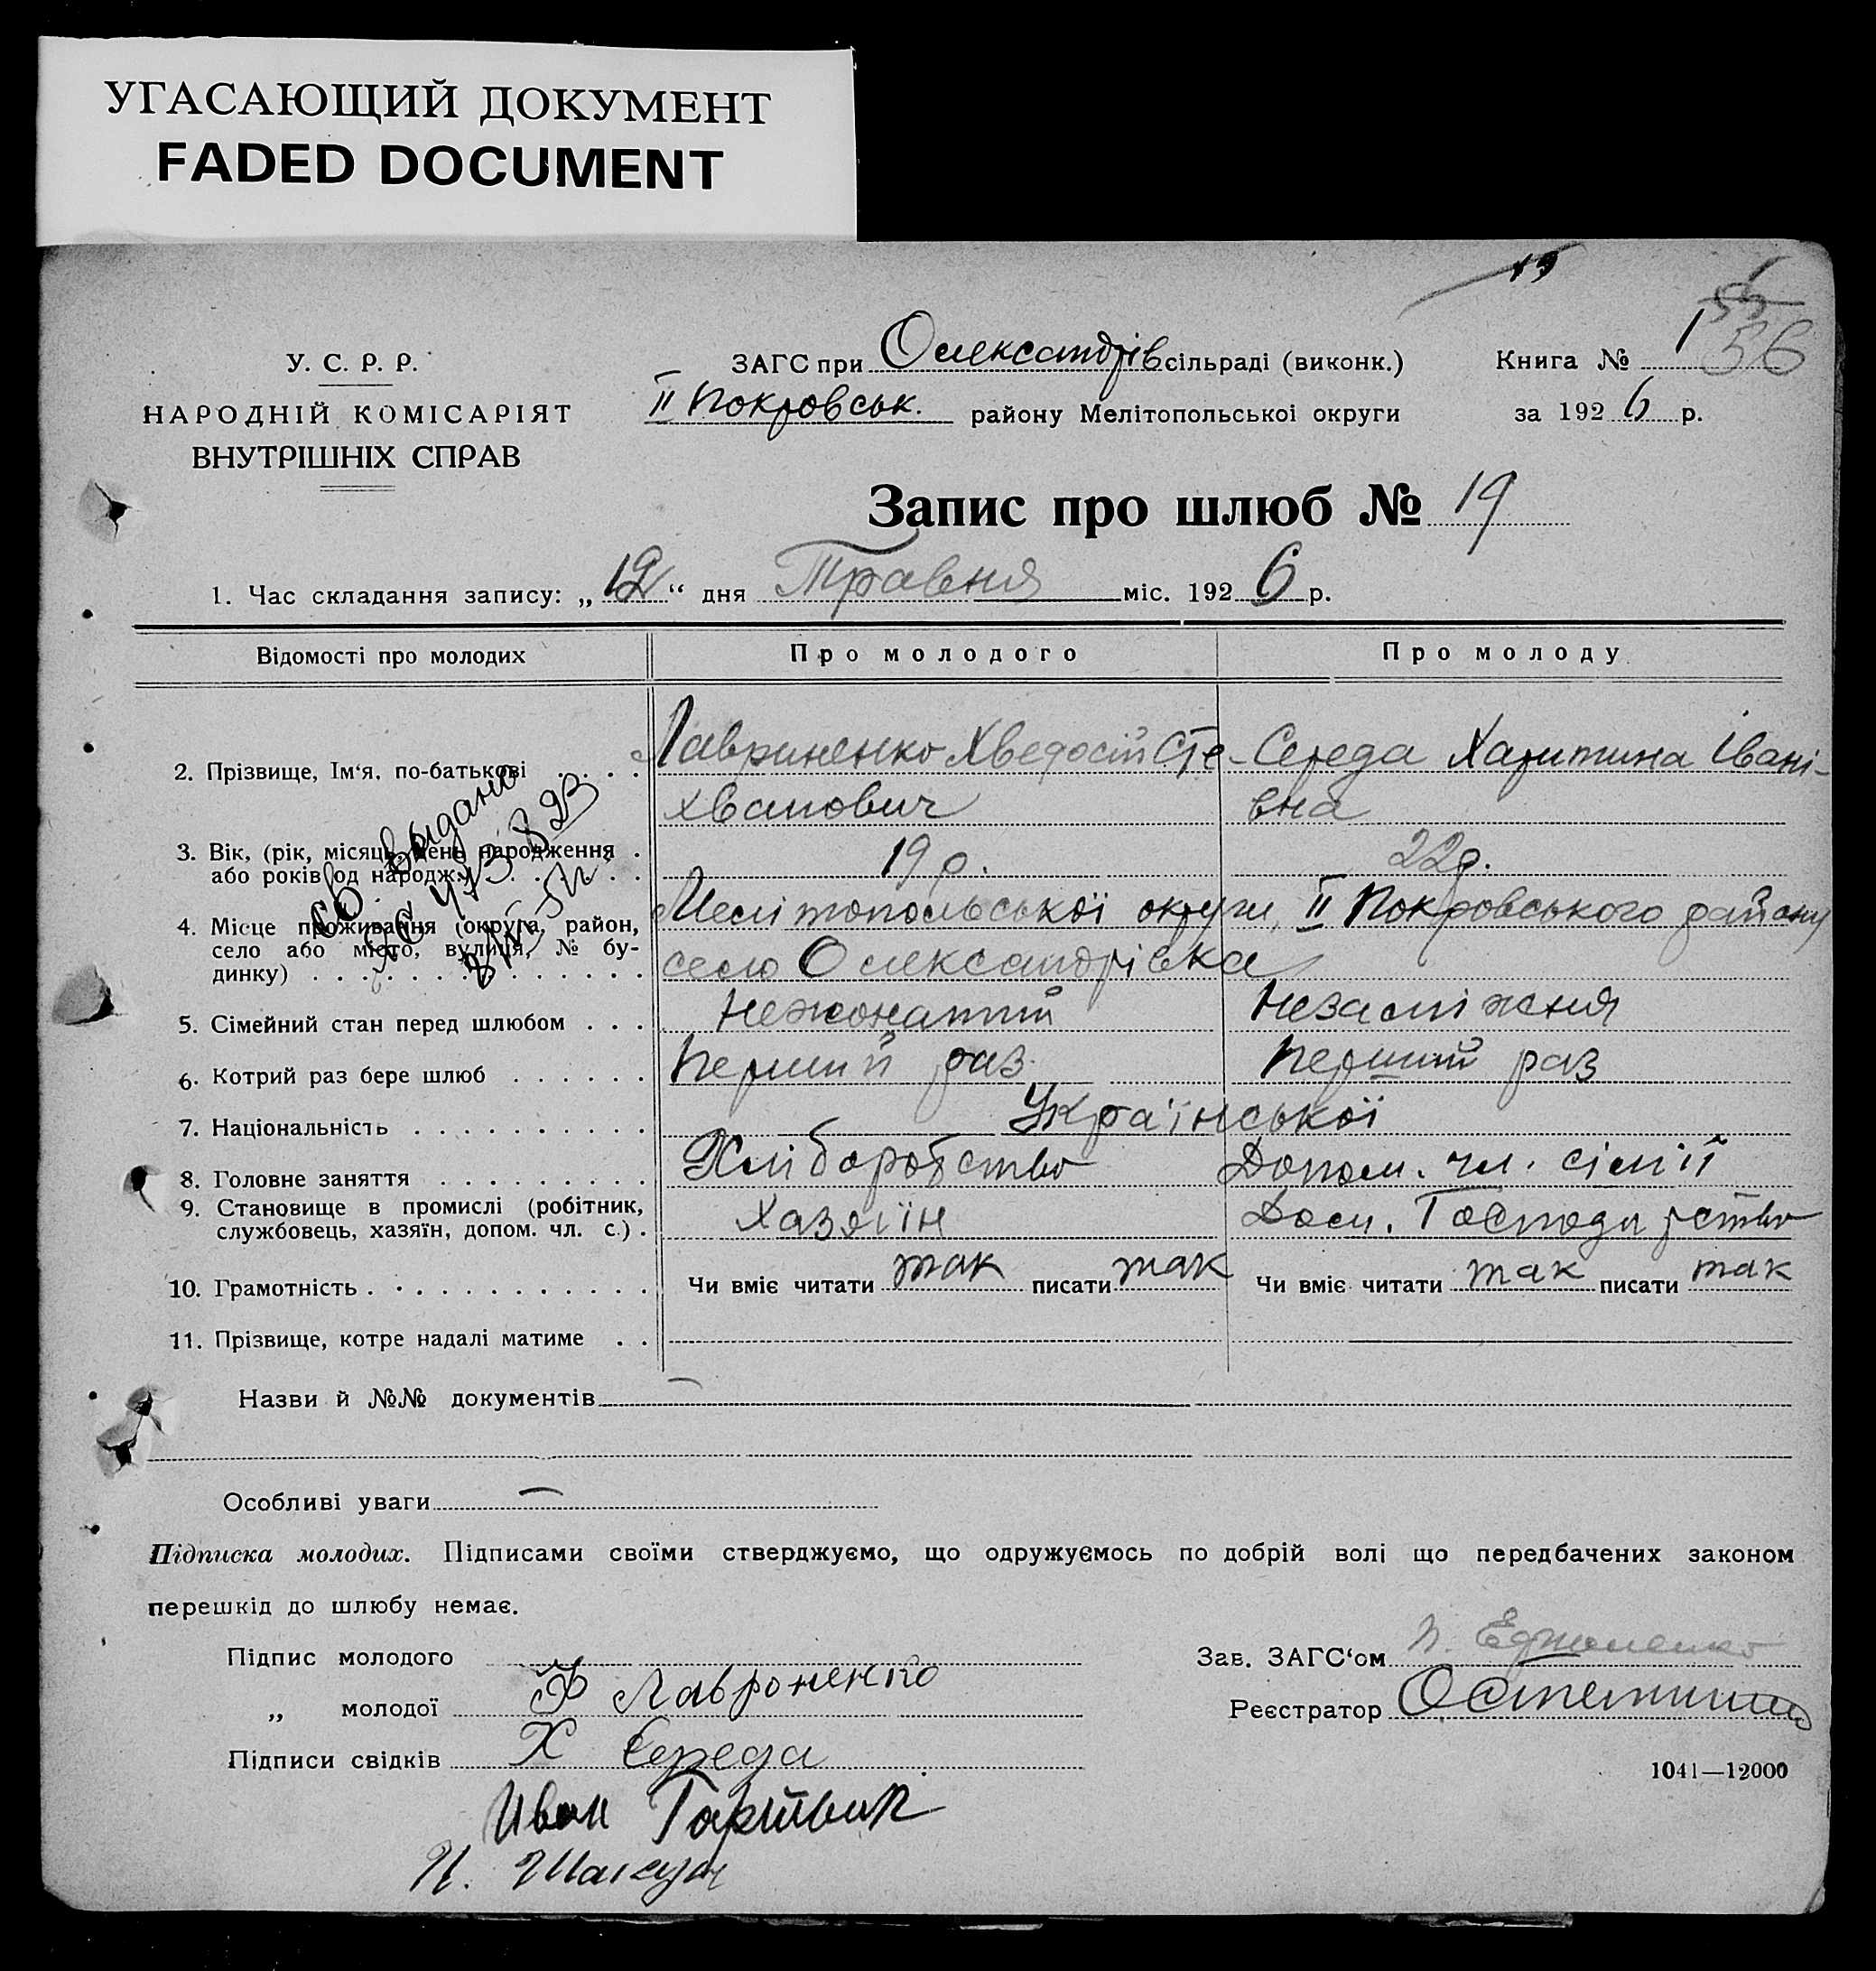 УГАСАЮЩИЙ ДОКУМЕНТ
FADED DOCUMENT
19
55
56
У. С. Р. Р.
НАРОДНІЙ КОМІСАРІЯТ
ВНУТРІШНІХ СПРАВ
ЗАГС при Олександрів сільраді (виконк.)
ІІ Покровськ. району Мелітопольської округи
Книга № 1
за 1926 р.
Запис про шлюб № 19
1. Час складання запису: „12“ дня Травня міс. 1926 р.
Відомості про молодих Про молодого Про молоду
2. Прізвище, Ім‘я, по-батькові . . . . Лавриненко Хведосій Сте- Середа Харитина Івані-
хванович вна
3. Вік, (рік, місяць, день народження . 19 р. 22 р.
або років од народж.) . . . . . . .
4. Місце проживання (округа, район, Мелітопольської округи, ІІ Покровського району
село або місто, вулиця, № бу-
динку) . . . . . . . . . . . . . . село Олександрівка
св. выдано
ЯС 473823
5. Сімейний стан перед шлюбом . . . Нежонатий Незаміжня
6. Котрий раз бере шлюб . . . . . . Перший раз Перший раз
7. Національність . . . . . . . . . . Української
8. Головне заняття . . . . . . . . . Хліборобство Допом. чл. сім'ії
9. Становище в промислі (робітник,
службовець, хазяїн, допом. чл. с.) . Хазяїн Дом. Господарство
10. Грамотність . . . . . . . . . . . Чи вміє читати так писати так Чи вміє читати так писати так
11. Прізвище, котре надалі матиме . .
Назви й №№ документів —
Особливі уваги —
Підписка молодих. Підписами своїми стверджуємо, що одружуємось по добрій волі що передбачених законом
перешкід до шлюбу немає.
Підпис молодого
„ молодої Ф Лавроненко
Підписи свідків Х Середа
Иван
И.
Зав. ЗАГС‘ом
Реєстратор
1041—12000